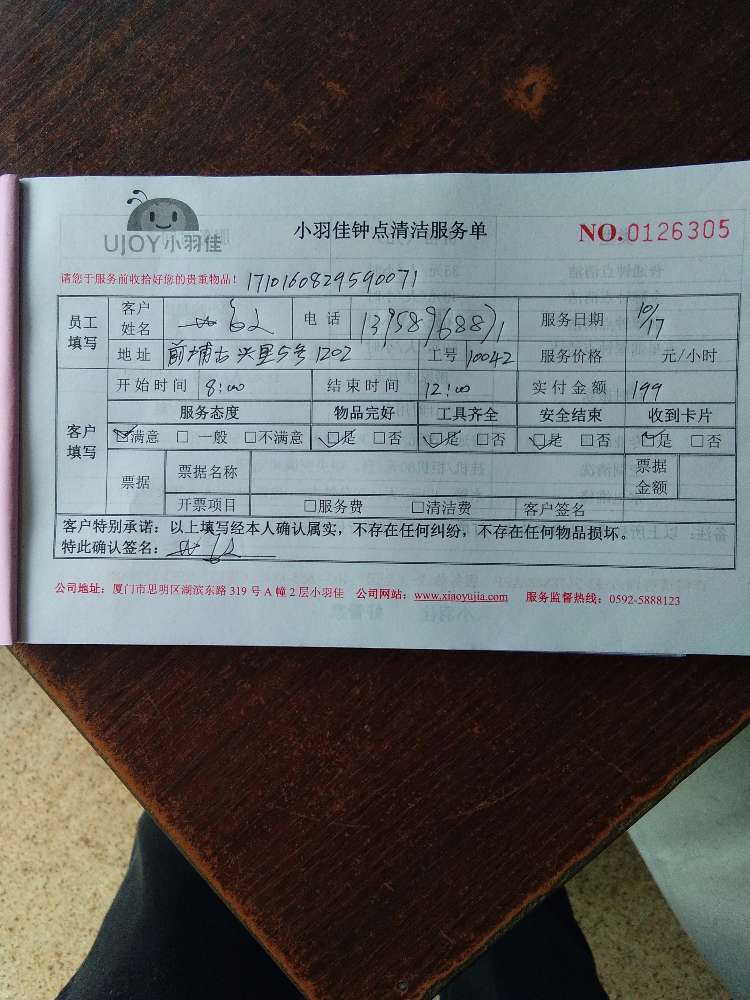 UJOY小羽佳
小羽佳钟点清洁服务单
NO.0126305
请您于服务前收拾好您的贵重物品! 1710160829590071
员工填写 客户姓名 电话 服务日期 10/17
地址 前埔古兴里5号1202 工号 10042 服务价格 元/小时
客户填写 开始时间 8:00 结束时间 12:00 实付金额 199
服务态度 物品完好 工具齐全 安全结束 收到卡片
☑满意 □一般 □不满意 ☑是 □否 ☑是 □否 ☑是 □否 ☑是 □否
票据 票据名称 票据金额
开票项目 □服务费 □清洁费 客户签名
客户特别承诺：以上填写经本人确认属实，不存在任何纠纷，不存在任何物品损坏。
特此确认签名：
公司地址：厦门市思明区湖滨东路 319 号 A 幢 2 层小羽佳 公司网站：www.xiaoyujia.com 服务监督热线：0592-5888123